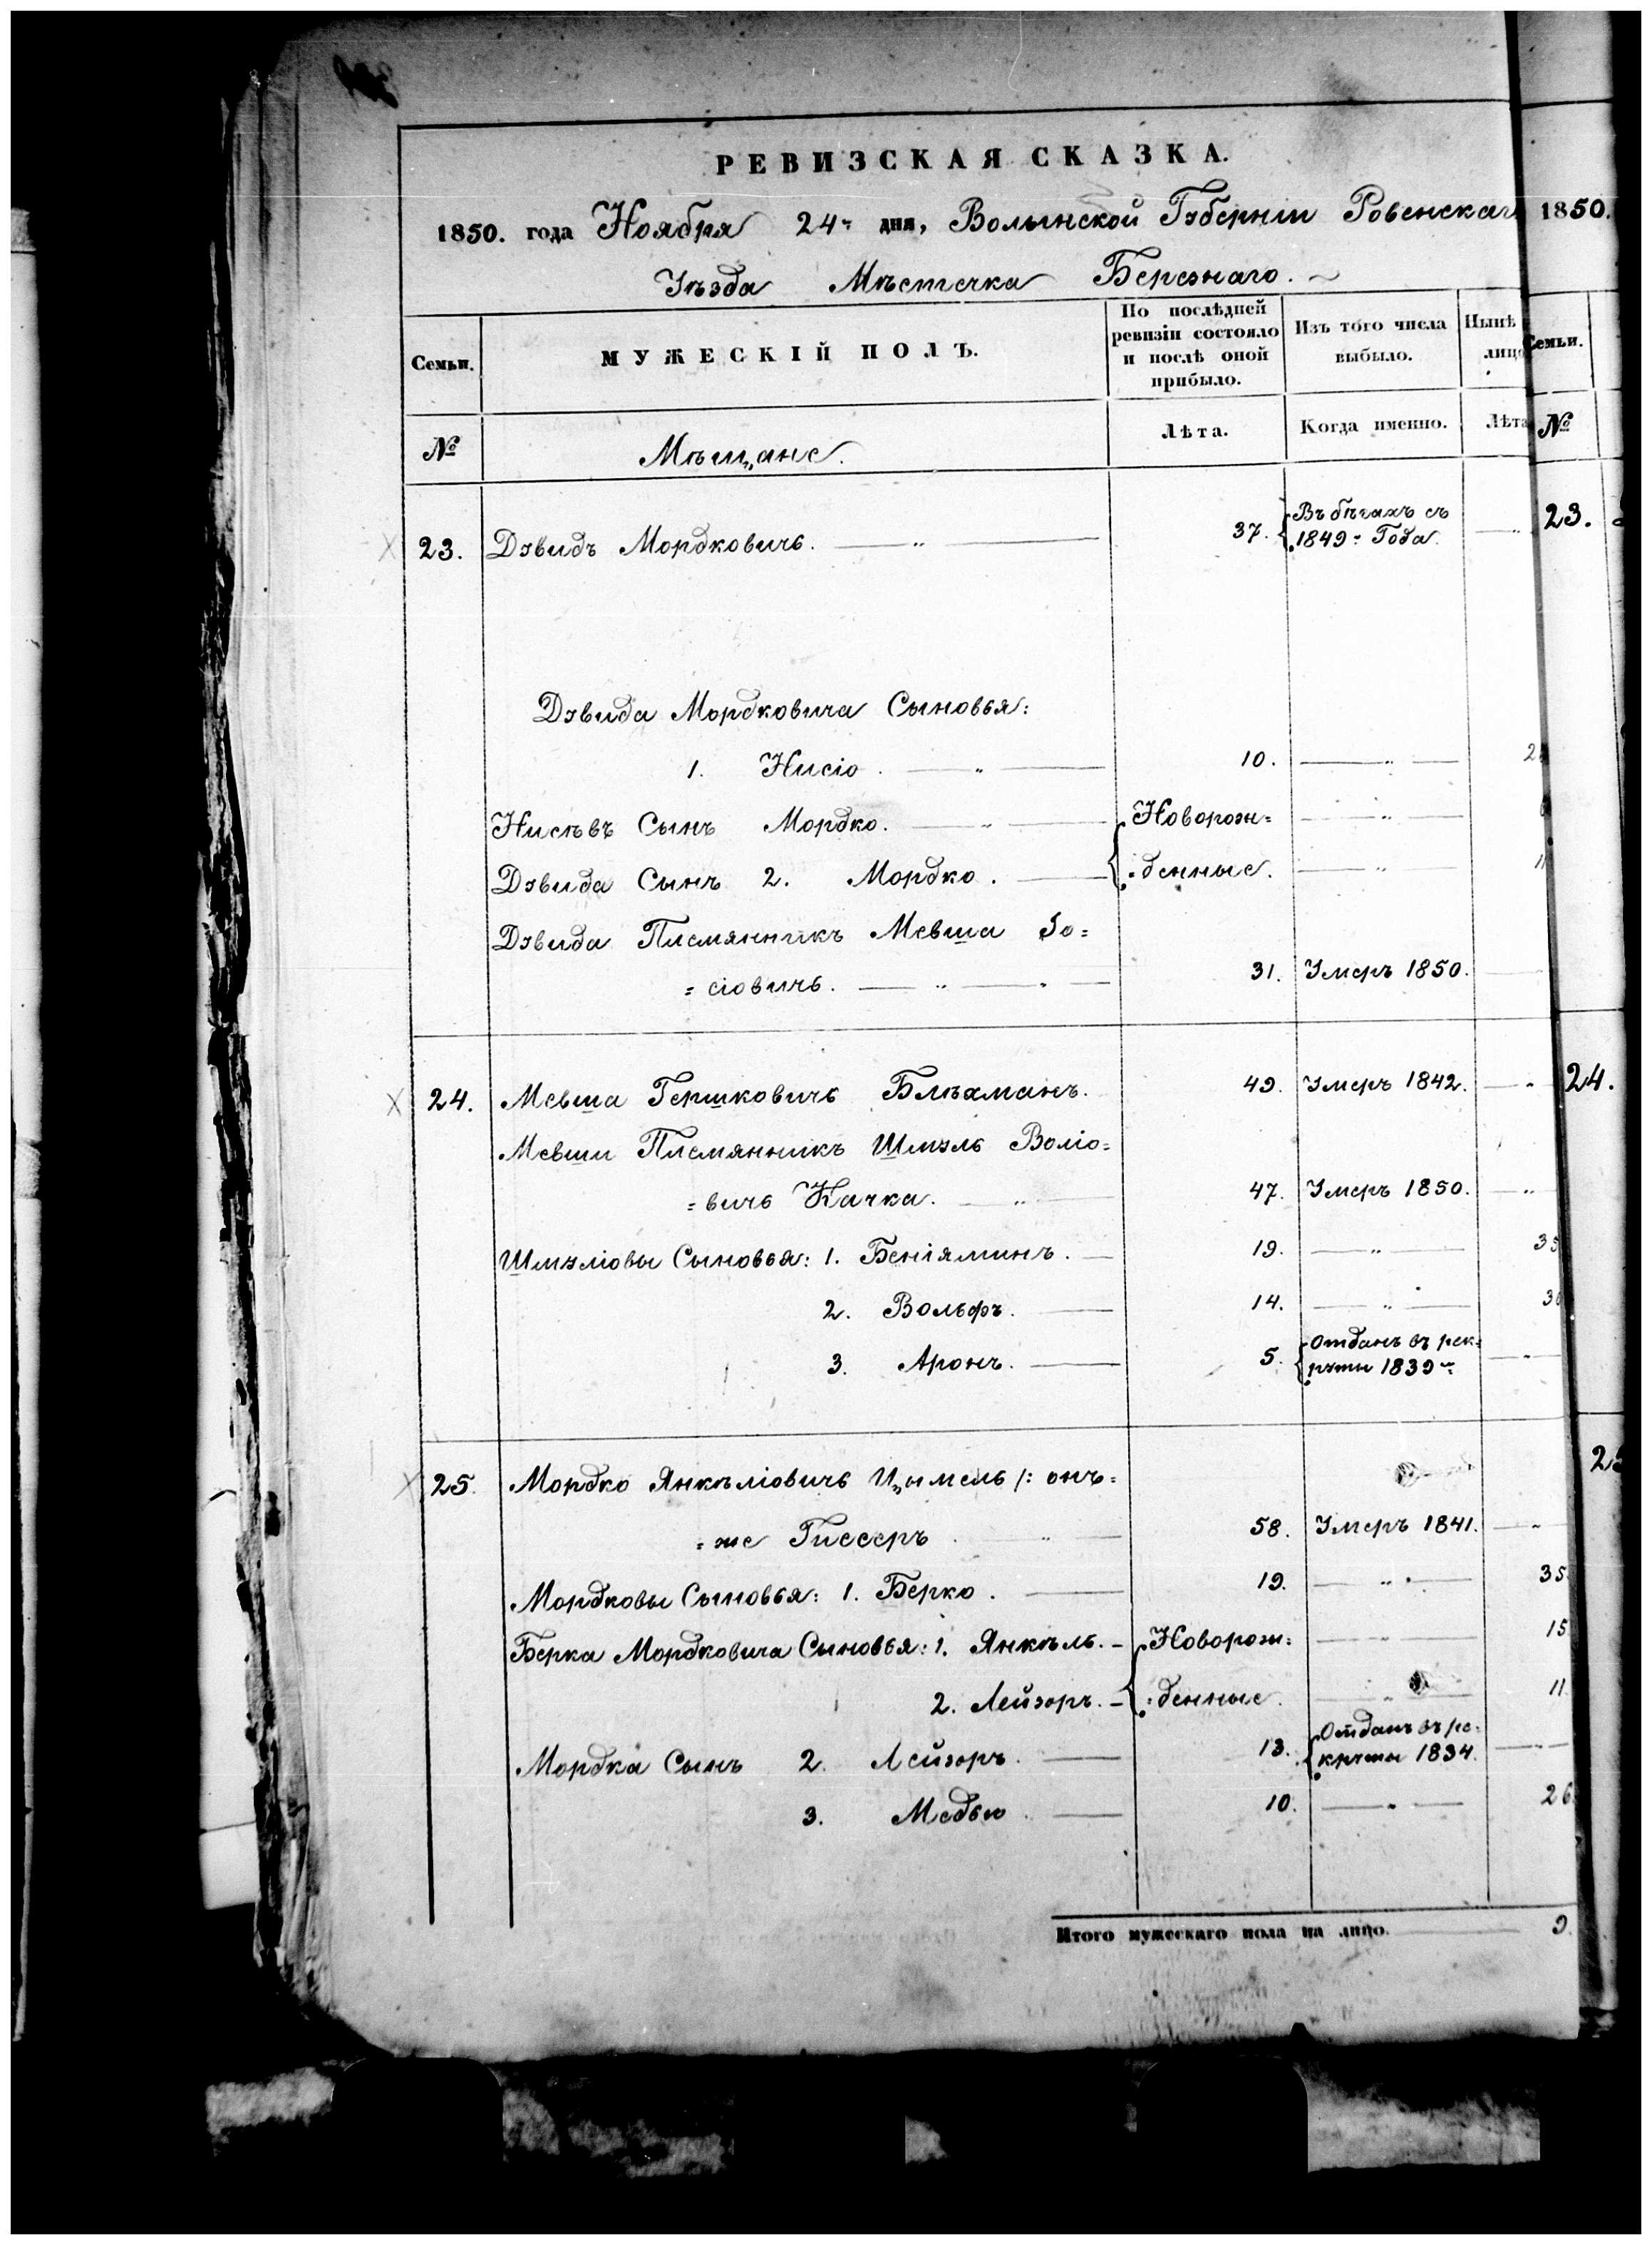 РЕВИЗСКАЯ СКАЗКА.
1850. года Ноября 24 дня, Волынской Губерніи Ровенскаг 1850.
Уѣзда Мѣстечка Березнаго.
Семьи. МУЖЕСКІЙ ПОЛЪ. По послѣдней ревизіи состояло и послѣ оной прибыло. Изъ того числа выбыло. Нынѣ лицо Семьи.
№ Мѣщане. Лѣта. Когда именно. Лѣта №
23. Дувидъ Мордковичъ. 37. Въ бѣгахъ съ 1849 Года. 23.
Дувида Мордковича Сыновья:
1. Нисіо. 10.
Нисѣвъ Сынъ Мордко. Новорож=
Дувида Сынъ 2. Мордко. =денные. 11
Дувида Племянникъ Мевша Іо=
=сіовичь. 31. Умеръ 1850.
24. Мевша Гершковичь Блѣхманъ. 49. Умеръ 1842. 24.
Мевши Племянникъ Шмуль Воліо=
=вичь Качка. 47. Умеръ 1850.
Шмуліовы Сыновья: 1. Беніяминъ. 19. 35
2. Вольфъ. 14. 30
3. Аронъ. 5. Отданъ въ рек=
руты 1839
25. Мордко Янкѣліовичь Цымель /: онъ= 25
=же Гиссеръ 58. Умеръ 1841.
Мордковы Сыновья: 1. Берко. 19. 35.
Берка Мордковича Сыновья: 1. Янкѣль. Новорож= 15
2. Лейзоръ. =денные. 11.
Мордка Сынъ 2. Лейзоръ. 13. Отданъ въ ре=
круты 1834.
3. Медью 10. 26.
Итого мужескаго пола на лицо. 9.